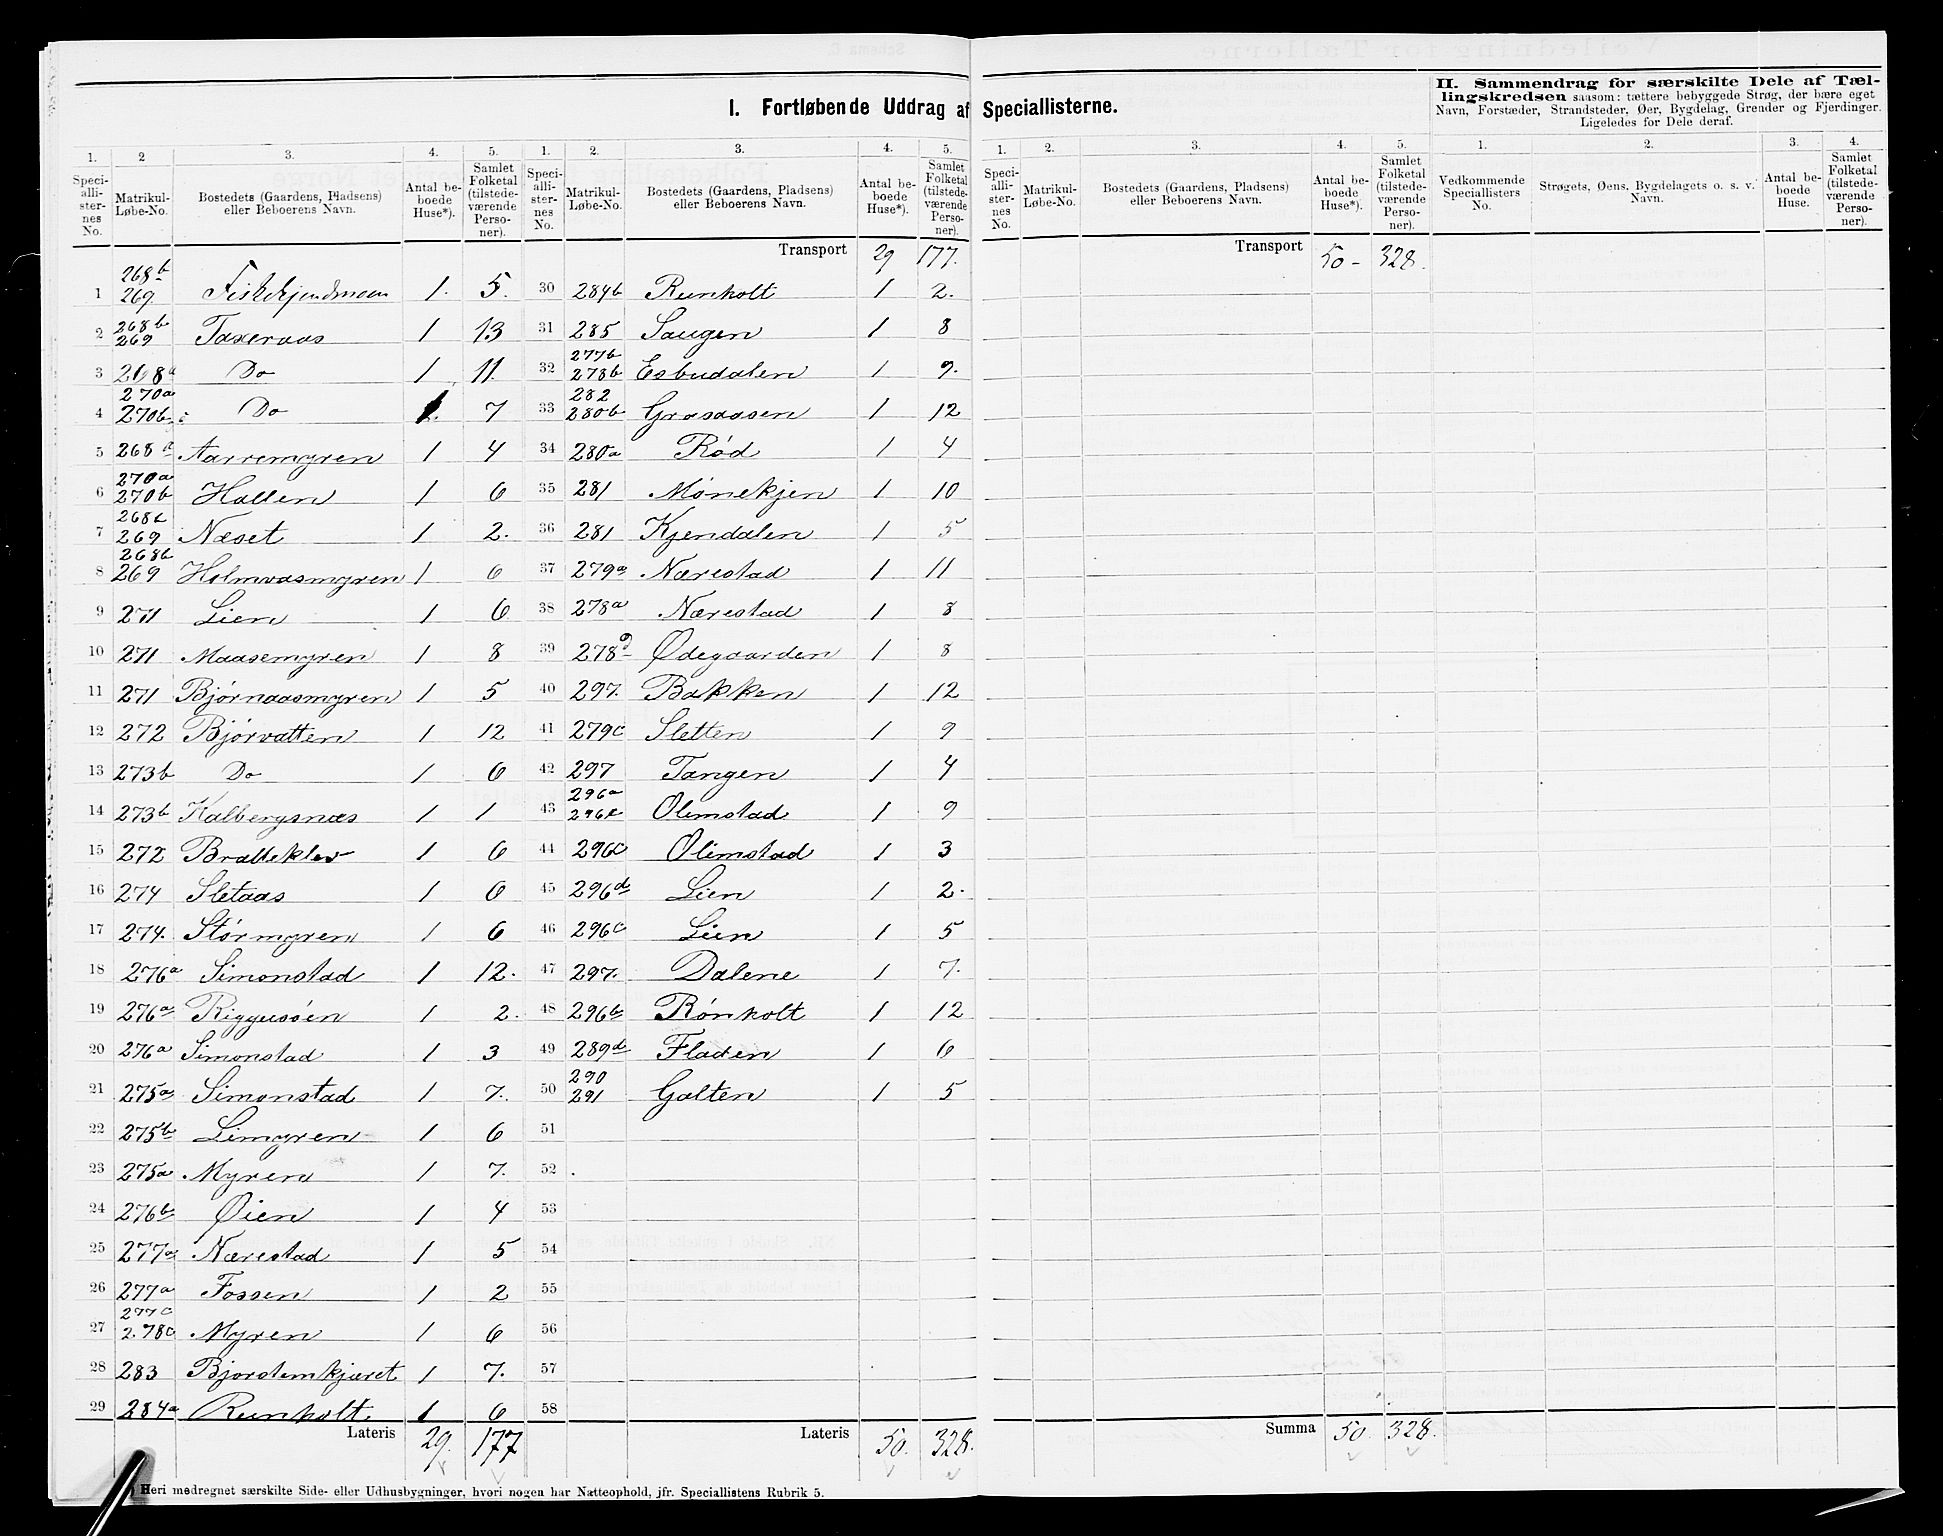 I. Fortløbende Uddrag af Speciallisterne.
II. Sammendrag for særskilte Dele af Tællingskredsen saasom: tættere bebyggede Strøg, der bære eget
Navn, Forstæder, Strandsteder, Øer, Bygdelag, Grender og Fjerdinger.
Ligeledes for Dele deraf.
1. 2 3. 4. 5. 1. 2. 3. 4. 5. 1. 2. 3. 4. 5. 1. 2. 3. 4.
Speciallisternes No. Matrikul-Løbe-No. Bostedets (Gaardens, Pladsens) eller Beboerens Navn. Antal beboede Huse*). Samlet Folketal (tilstedeværende Personer).
Speciallisternes No. Matrikul-Løbe-No. Bostedets (Gaardens, Pladsens) eller Beboerens Navn. Antal beboede Huse*). Samlet Folketal (tilstedeværende Personer).
Speciallisternes No. Matrikul-Løbe-No. Bostedets (Gaardens, Pladsens) eller Beboerens Navn. Antal beboede Huse*). Samlet Folketal (tilstedeværende Personer).
Vedkommende Speciallisters No. Strøgets, Øens, Bygdelagets o. s. v. Navn. Antal beboede Huse. Samlet Folketal (tilstedeværende Personer).
1 268b 269 Fiskekjendmoen 1. 5.
2 268b 269 Taxeraas 1 13
3 268a Do 1 11.
4 270a 270b Do 1. 7
5 268a Aarremyren 1 4
6 270a 270b Hallen 1 6
7 268b 269 Næset 1 2.
8 268b 269 Holmvasmyren 1 6
9 271 Lien 1 6
10 271 Maasemyren 1 8
11 271 Bjørnaasmyren 1 5
12 272 Bjørvatten 1 12
13 273b Do 1 6
14 273b Kalbergsnæs 1 1
15 272 Bratteklev 1 6
16 274 Sletaas 1 6
17 274. Størmyren 1 6
18 276a Simonstad 1 12.
19 276a Riggusöen 1 2.
20 276a Simonstad 1 3
21 275a Simonstad 1 7.
22 275b Limyren 1 6
23 275a Myren 1 7.
24 276b Øien 1 4
25 277a Nærestad 1 5
26 277a Fossen 1 2
27 277c 278c Myren 1 6
28 283 Bjorstemkjæret 1 7.
29 284a Runholt. 1 6
Lateris 29. 177
Transport 29 177.
30 284b Runholt 1 2.
31 285 Saugen 1 8
32 277b 278b Esbudalen 1 9.
33 282 280b Grasaasen 1 12
34 280a Rød 1 4
35 281 Mønekjen 1 10
36 281 Kjendalen 1 5
37 279a Nærestad 1 11
38 278a Nærestad 1 8
39 278 Ødegaarden 1 8
40 297. Bakken 1 12
41 279c Sletten 1 9
42 297 Tangen 1 4
43 296a 296e Olimstad 1 9
44 296c Olimstad 1 3
45 296d Lien 1 2.
46 296c Lien 1 5
47 297. Dalene 1 7.
48 296b Rønholt 1 12
49 289d Fladen 1 6
50 290 291 Galten 1 5
51
52
53
54
55
56
57
58
Lateris 50. 328.
Transport 50 - 328.
Summa 50. 328.
*) Heri medregnet særskilte Side- eller Udhusbygninger, hvori nogen har Natteophold, jfr. Speciallistens Rubrik 5.